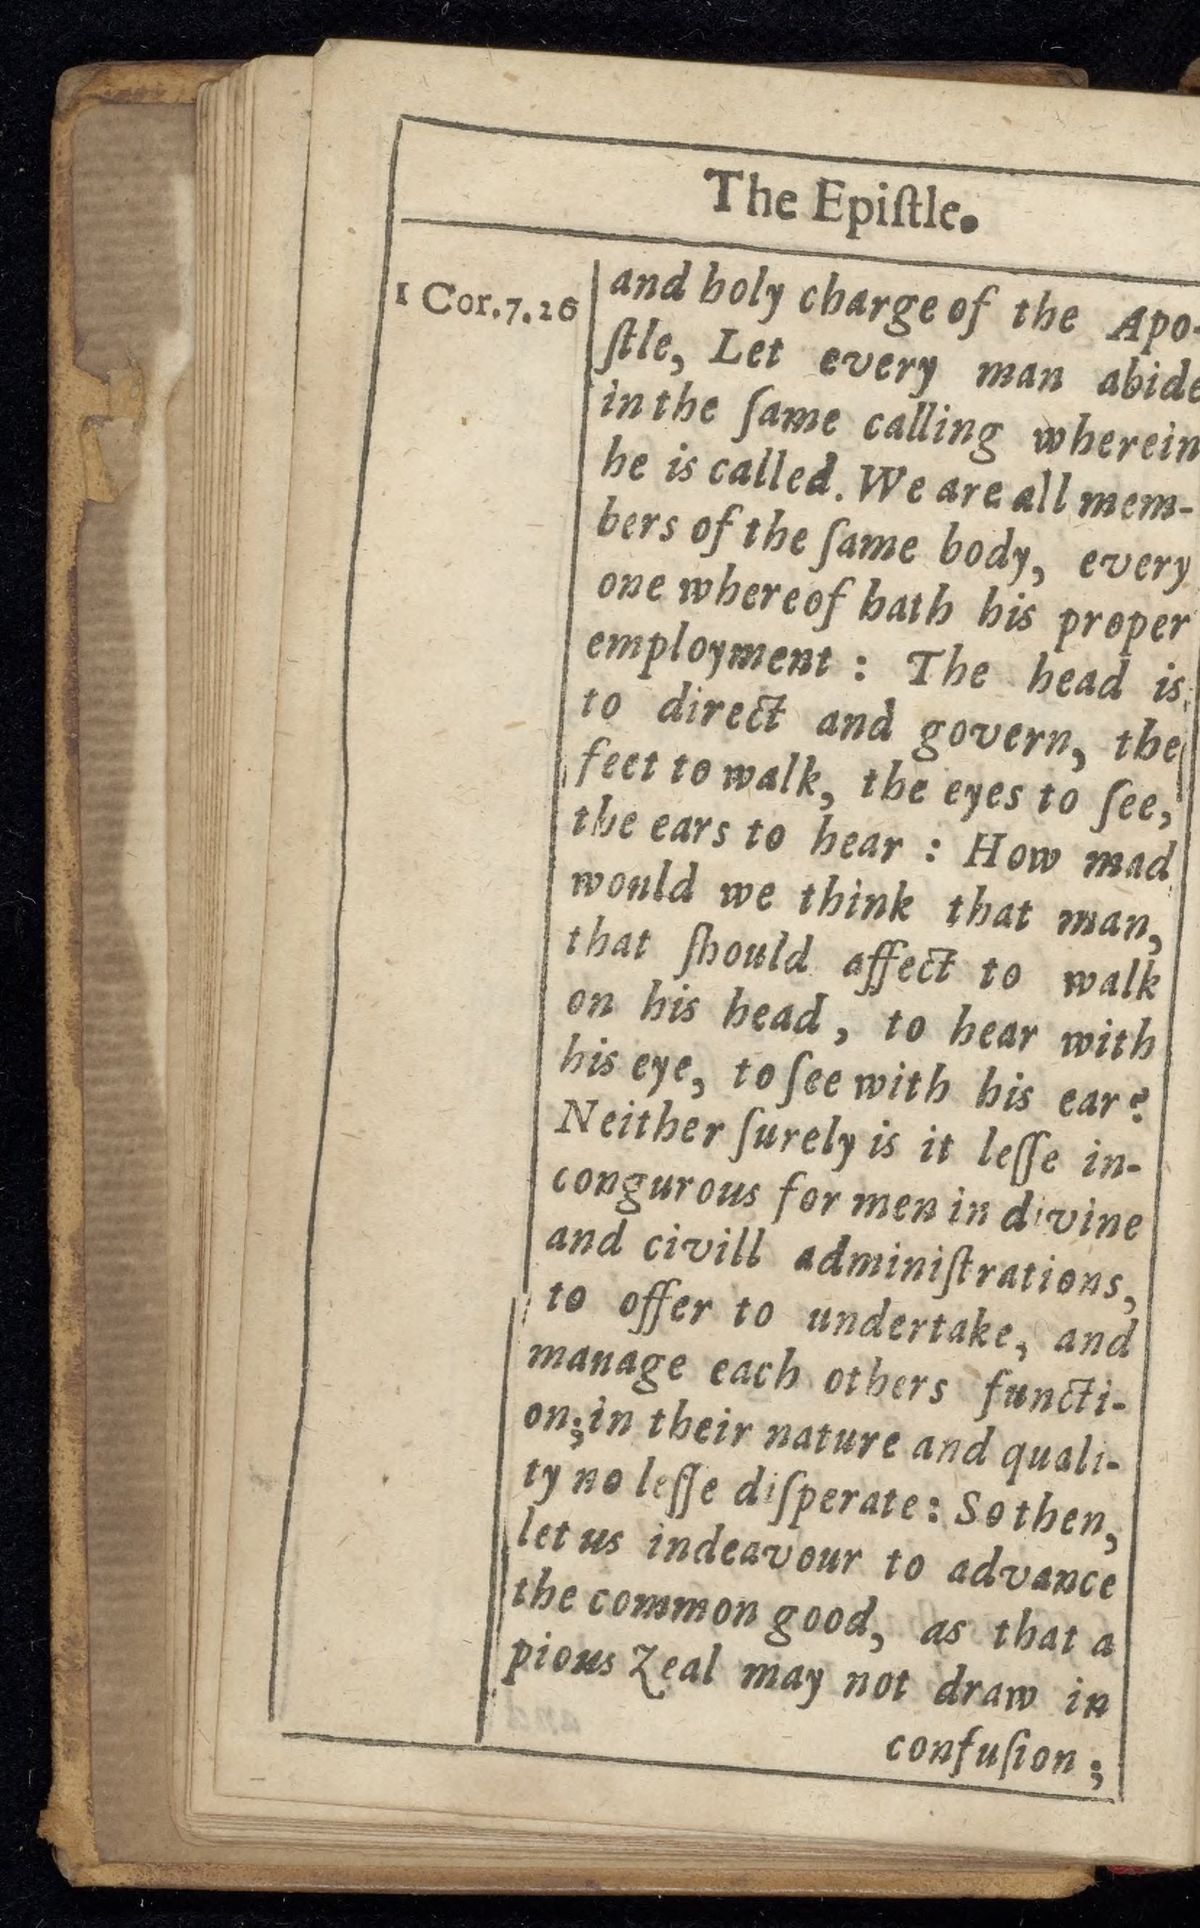 The Epiſtle.
1 Cor.7.26
and holy charge of the Apo-
ſtle, Let every man abide
in the ſame calling wherein
he is called. We are all mem-
bers of the ſame body, every
one whereof hath his proper
employment : The head is
to direct and govern, the
feet to walk, the eyes to ſee,
the ears to hear : How mad
would we think that man,
that ſhould affect to walk
on his head, to hear with
his eye, to ſee with his ear?
Neither ſurely is it leſſe in-
congurous for men in divine
and civill adminiſtrations,
to offer to undertake, and
manage each others functi-
on; in their nature and quali-
ty no leſſe diſperate: So then,
let us indeavour to advance
the common good, as that a
pious Zeal may not draw in
confuſion;